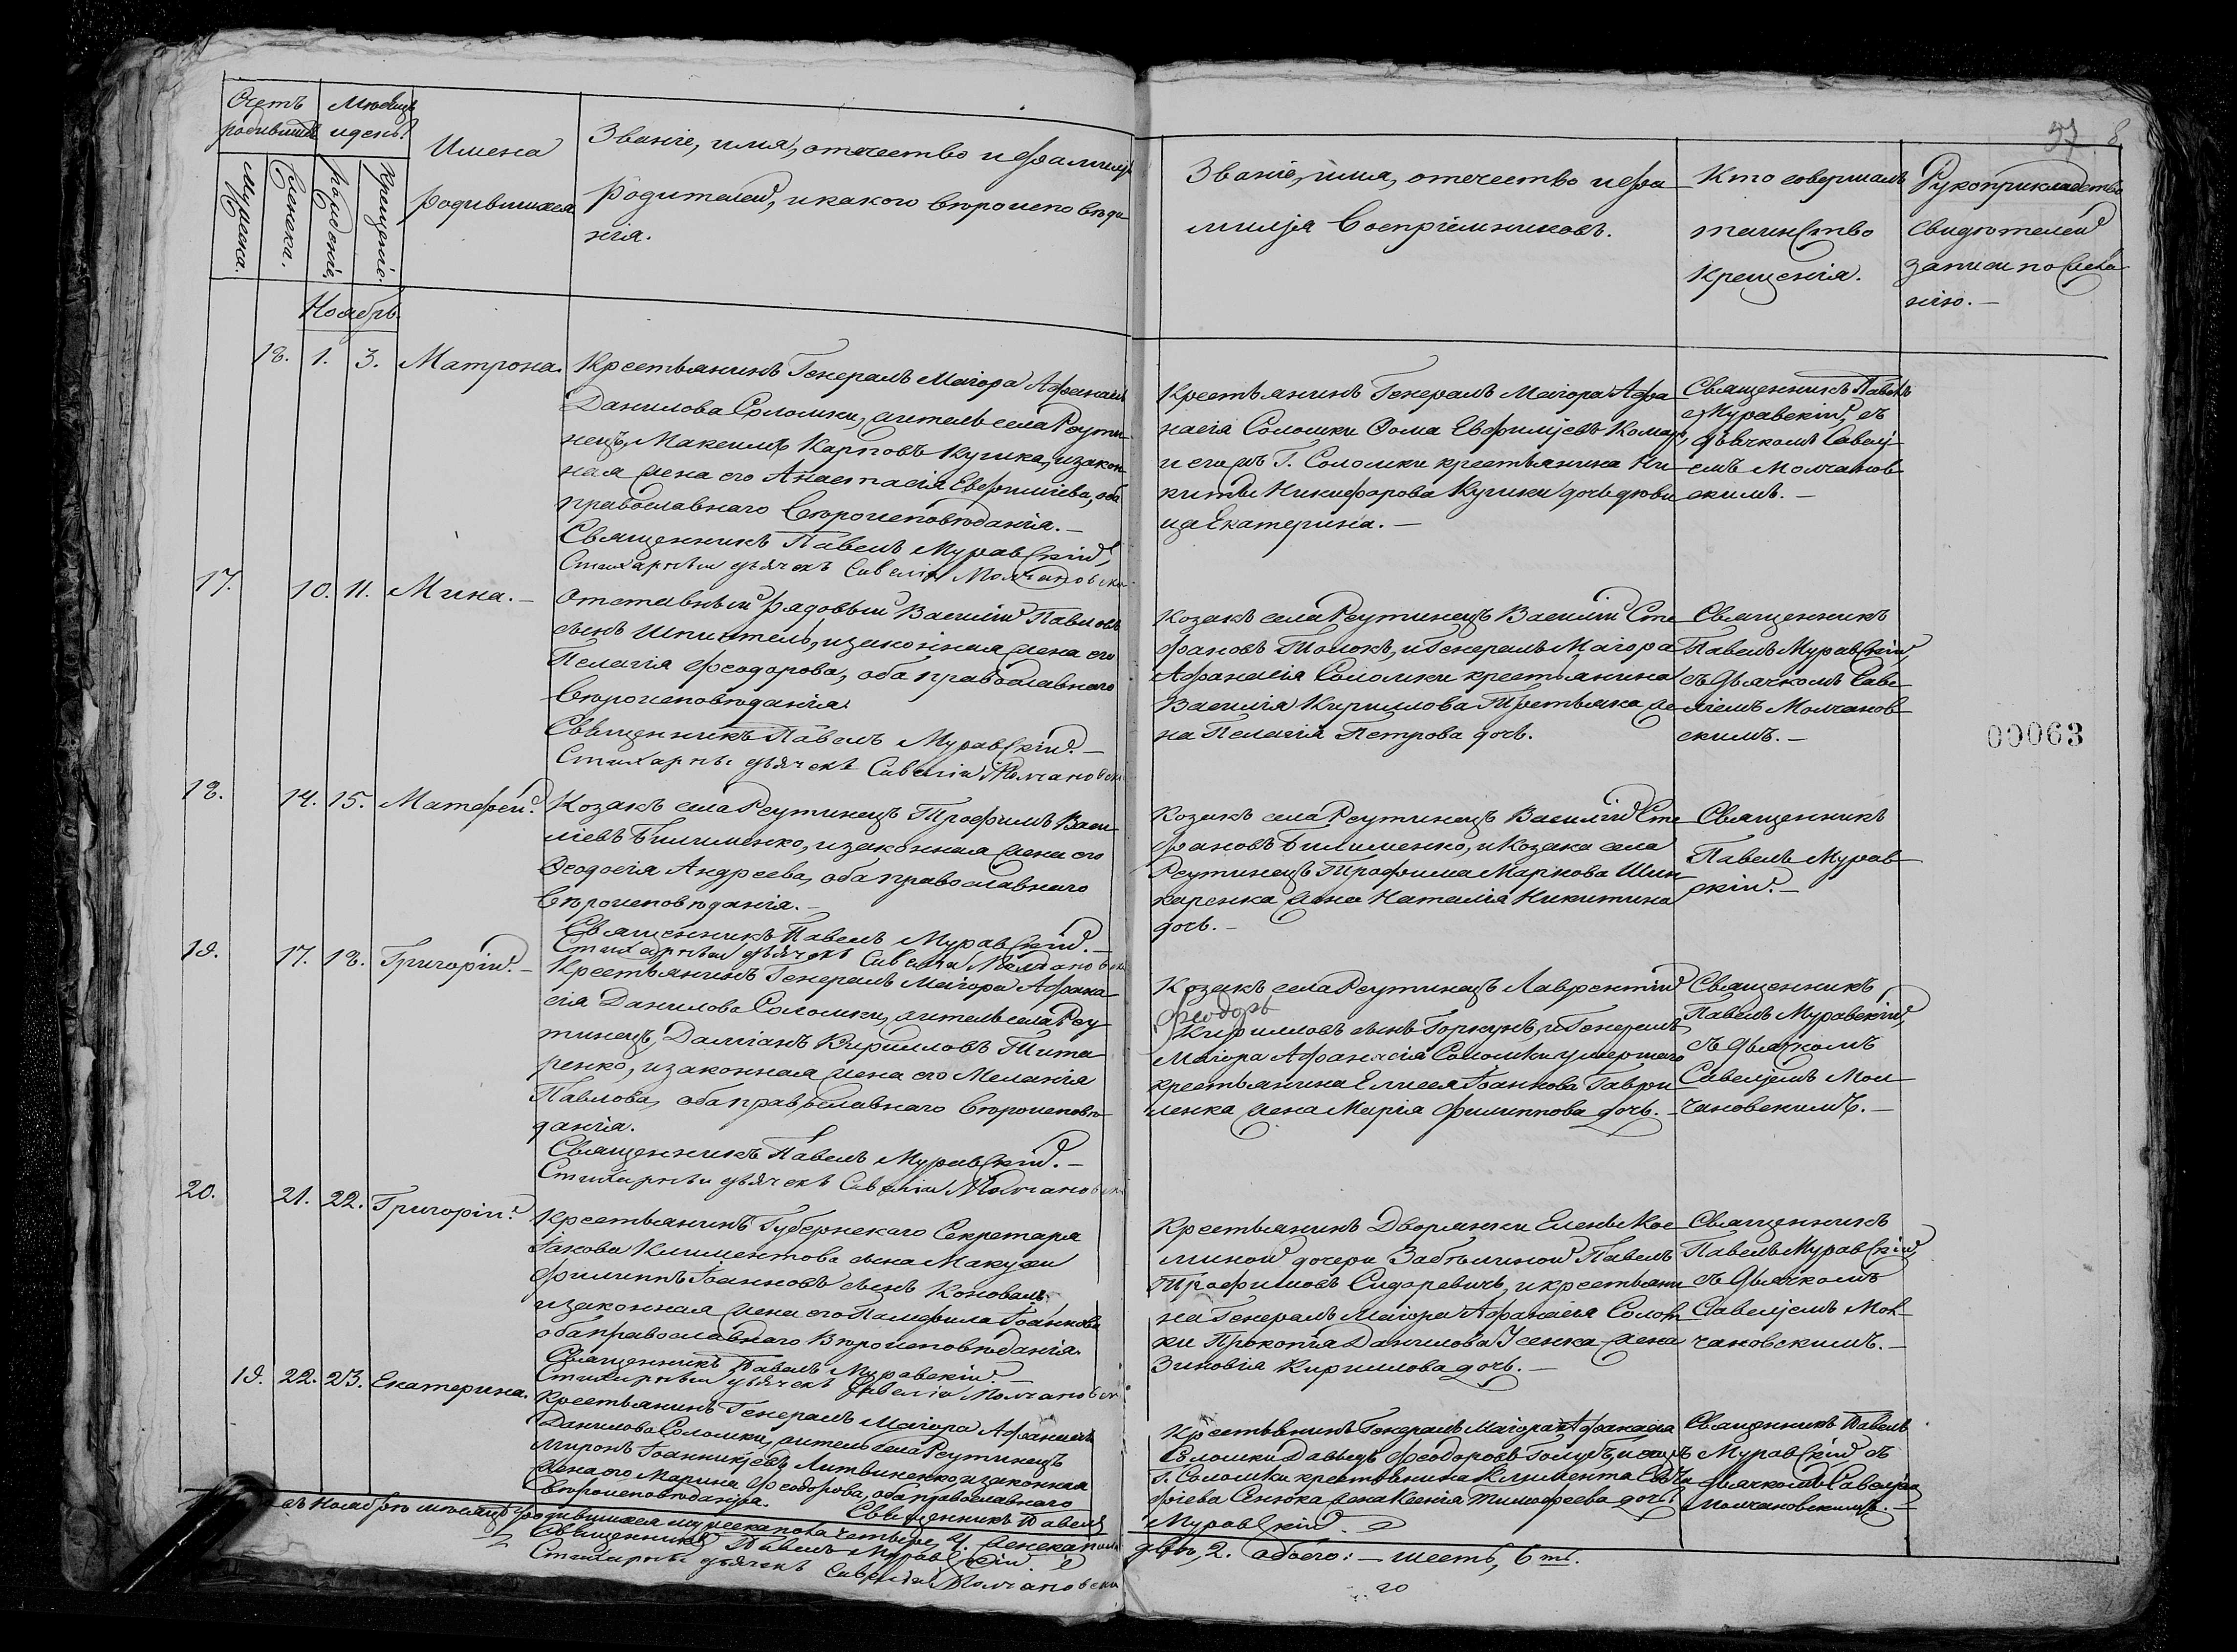 Счетъ родившихся
Мѣсяцъ и день.
Имена родившихся
Званіе, имя, отечество и фамилія
родителей, и какого вѣроисповѣда-
нія.
Мужеска.
Женска.
Рожденія.
Крещенія.
Званіе, имя, отечество и фа-
милія Воспріемниковъ.
Кто совершалъ
таинство
крещенія.
Рукоприкладство
свидѣтелей
записи по жела-
нію.
8
Ноябрь.
18. 1. 3. Матрона.
Крестьянинъ Генералъ Маіора Афанасія
Данилова Соломки, житель села Реути-
нецъ, Максимъ Карповъ Кугука, и закон-
ная жена его Анастасія Евфиміева, оба
православнаго вѣроисповѣданія.
Священникъ Павелъ Муравскій,
Стихарный дьячекъ Савелій Молчановскій
Крестьянинъ Генералъ Маіора Афа-
насія Соломки Фома Евфиміевъ Комар,
и его жъ Г. Соломки крестьянина Ни-
киты Никифорова Кугуки дочь дѣви-
ца Екатерина.
Священникъ Павелъ
Муравскій, съ
дьячкомъ Савелі-
емъ Молчанов-
скимъ.
17. 10. 11. Мина.
Отставный рядовый Василій Павловъ
сынъ Шпитель, и законная жена его
Пелагія Феодорова, оба православнаго
вѣроисповѣданія.
Священникъ Павелъ Муравскій.
Стихарный дьячекъ Савелій Молчановскій
Козакъ села Реутинецъ Василій Сте-
фановъ Толокъ, и Генералъ Маіора
Афанасія Соломки крестьянина
Василія Кириллова Третьяка же-
на Пелагія Петрова дочь.
Священникъ
Павелъ Муравскій,
съ дьячкомъ Саве-
ліемъ Молчанов-
скимъ.
00063
18. 14. 15. Матфей.
Козакъ села Реутинецъ Трофимъ Васи-
ліевъ Билименко, и законная жена его
Феодосія Андреева, оба православнаго
вѣроисповѣданія.
Священникъ Павелъ Муравскій.
Стихарный дьячекъ Савелій Молчановскій
Козакъ села Реутинецъ Василій Сте-
фановъ Билименко, и Козака села
Реутинецъ Трофима Маркова Шин-
каренка жена Наталія Никитина
дочь.
Священникъ
Павелъ Мурав-
скій.
19. 17. 18. Григорій.
Крестьянинъ Генералъ Маіора Афана-
сія Данилова Соломки, житель села Реу-
тинецъ, Даміанъ Кирилловъ Тита-
ренко, и законная жена его Меланія
Павлова, оба православнаго вѣроисповѣ-
данія.
Священникъ Павелъ Муравскій.
Стихарный дьячекъ Савелій Молчановскій
Козакъ села Реутинецъ Лаврентій
Феодоръ
Кирилловъ сынъ Горкунъ, и Генералъ
Маіора Афанасія Соломки умершаго
крестьянина Елисея Іоаннова Гаври-
ленка жена Марія Филиппова дочь.
Священникъ
Павелъ Муравскій,
съ дьячкомъ
Савеліемъ Мол-
чановскимъ.
20. 21. 22. Григорій.
Крестьянинъ Губернскаго Секретаря
Іакова Климентова сына Макухи
Филиппъ Іоанновъ сынъ Коновалъ,
и законная жена его Памфила Іоаннова
оба православнаго Вѣроисповѣданія.
Священникъ Павелъ Муравскій.
Стихарный дьячекъ Савелій Молчановскій
Крестьянинъ Дворянки Елены Кос-
миной дочери Забѣлиной Павелъ
Трофимовъ Сидаревичъ, и крестьяни-
на Генералъ Маіора Афанасія Солом-
ки Прокопія Данилова Усенка жена
Зиновія Кириллова дочь.
Священникъ
Павелъ Муравскій
съ дьячкомъ
Савеліемъ Мол-
чановскимъ.
19. 22. 23. Екатерина.
Крестьянинъ Генералъ Маіора Афанасія
Данилова Соломки, житель села Реутинецъ
Миронъ Іоанникіевъ Литвиненко, и законная
жена его Марина Феодорова, оба православнаго
вѣроисповѣданія. Священникъ Павелъ
Муравскій.
Крестьянинъ Генералъ Маіора Афанасія
Соломки Давыдъ Феодоровъ Голубъ, и его жъ
Г. Соломки крестьянина Климента
Сенюка жена Ксенія Тимофеева дочь.
Священникъ Павелъ
Муравскій съ
дьячкомъ Савеліемъ
Молчановскимъ.
въ Ноябрѣ мѣсяцѣ родившихся мужеска пола четыре, 4. женска пола
двѣ, 2. обоего: шесть, 6ть.
Священникъ Павелъ Муравскій.
Стихарный дьячекъ Савелій Молчановскій